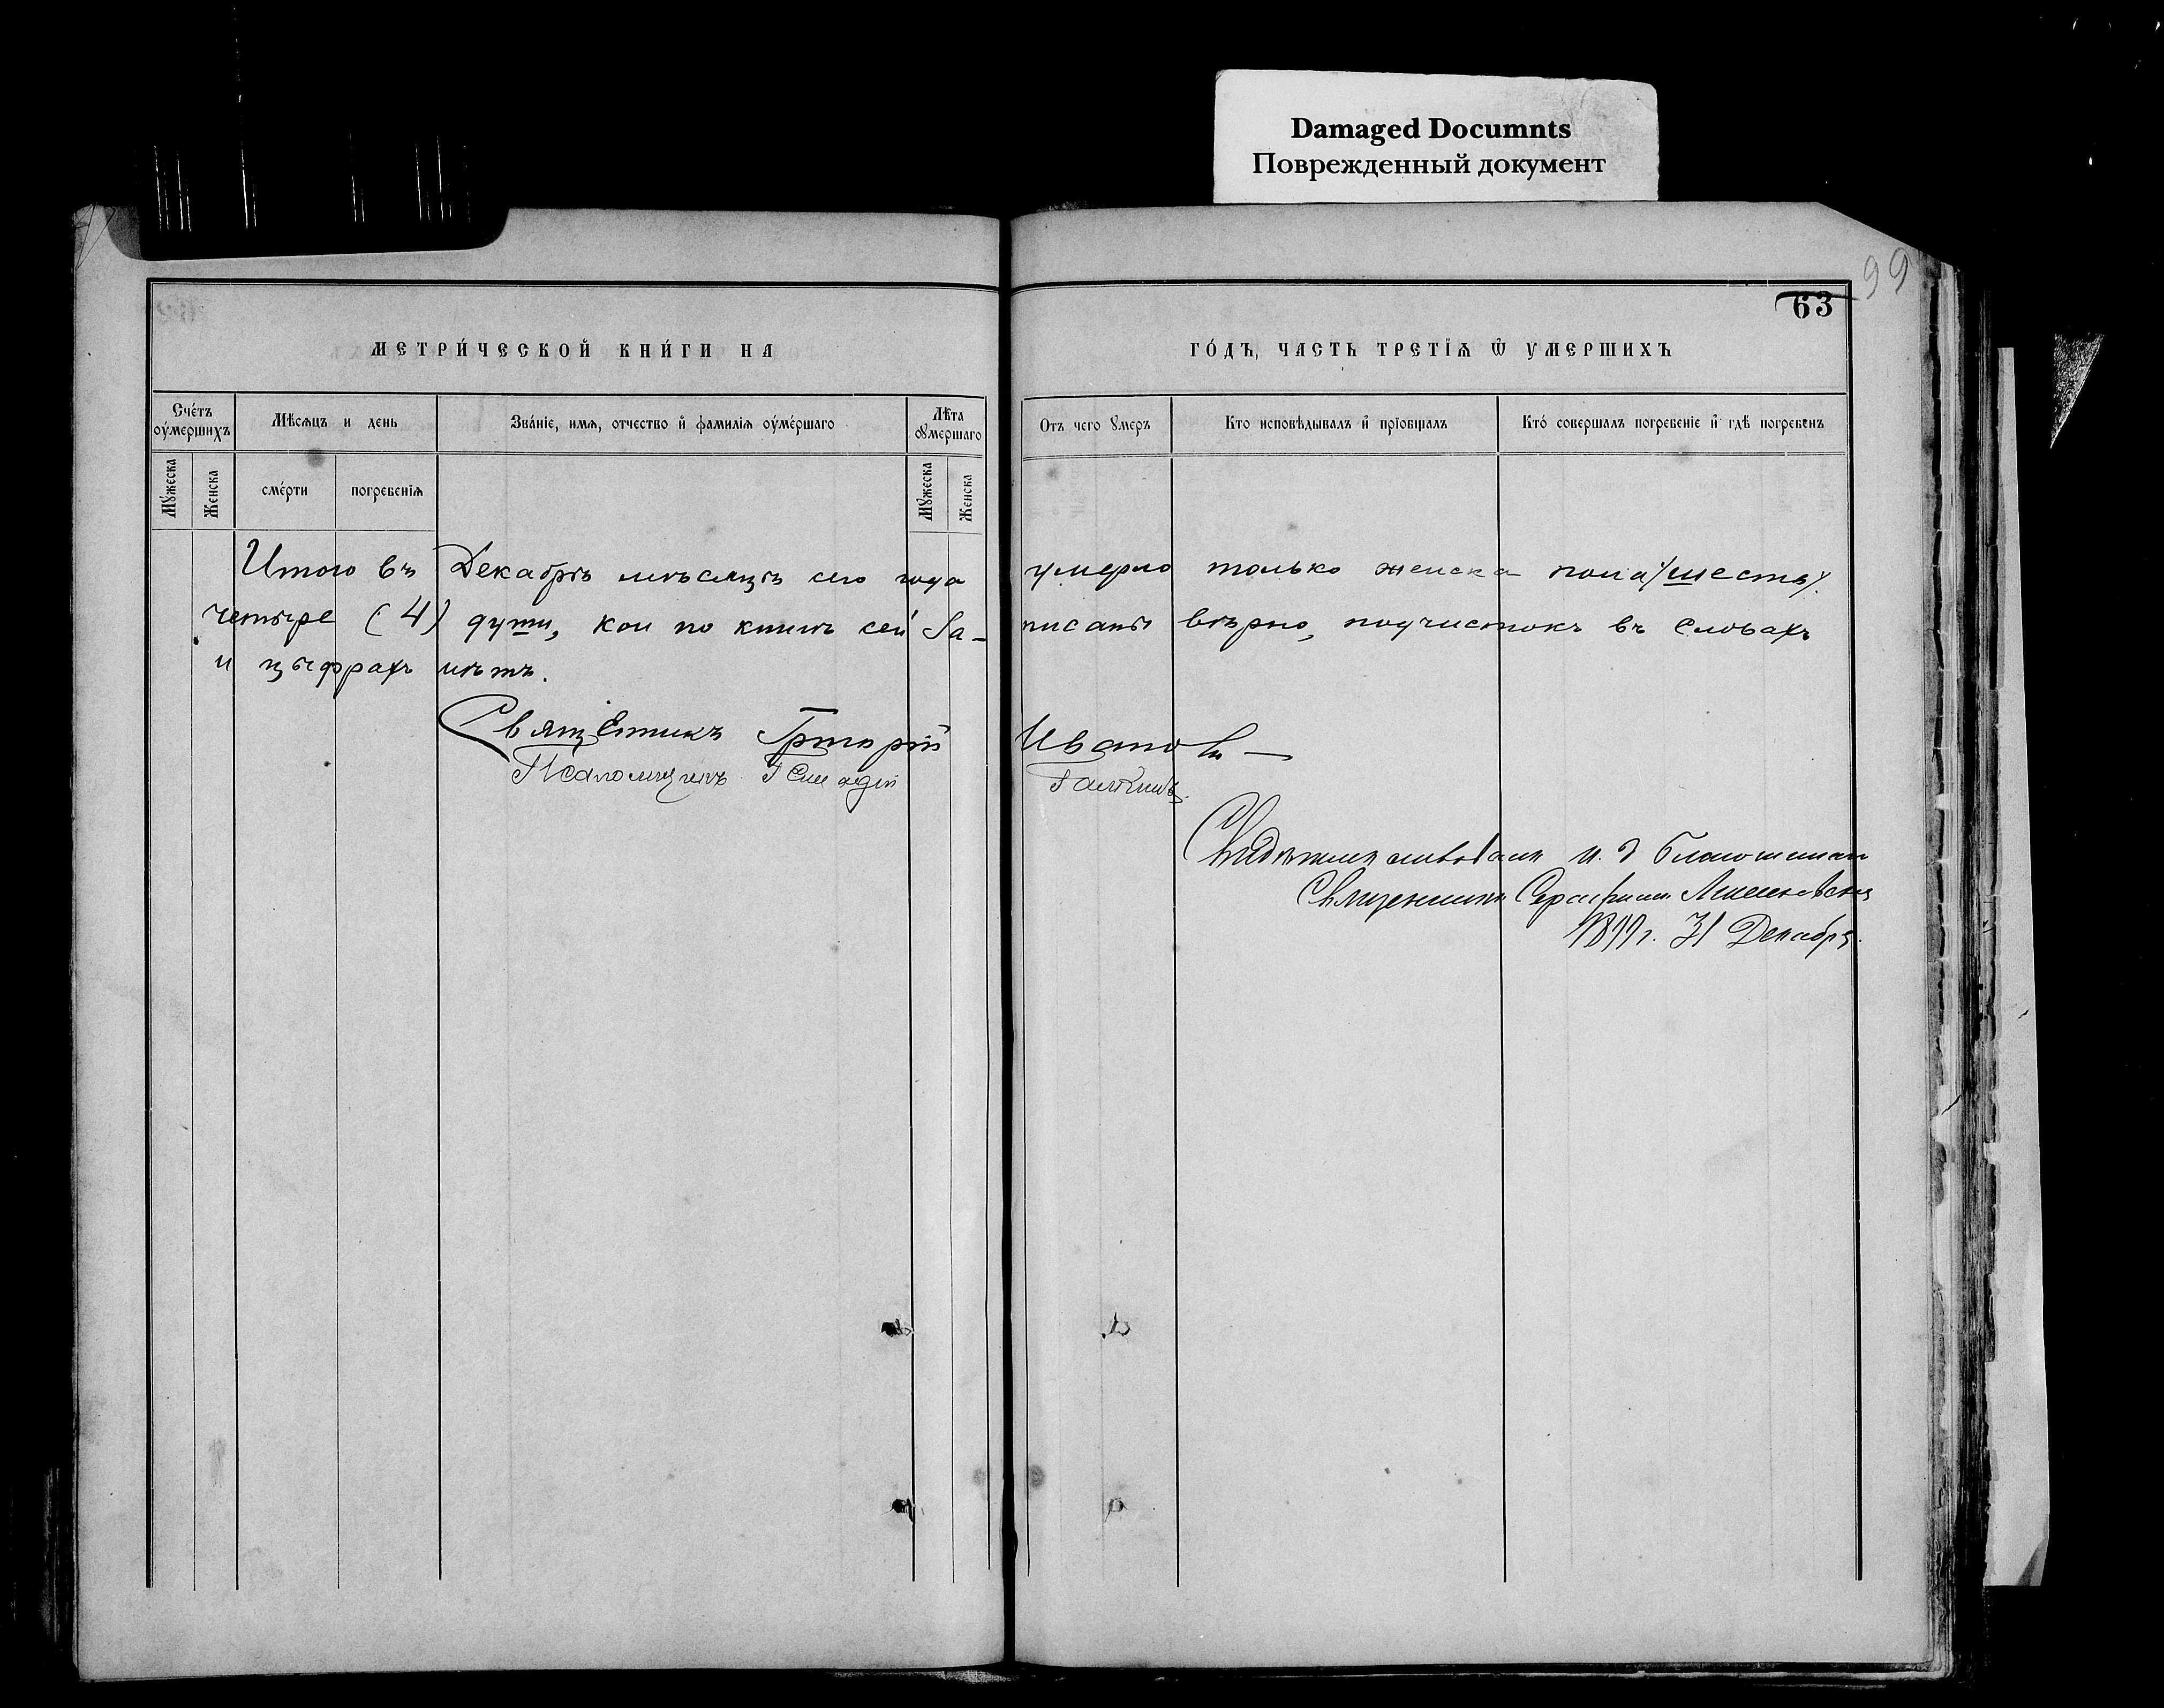 Damaged Documnts
Поврежденный документ
99
63
МЕТРИ́ЧЕСКОЙ КНИ́ГИ НА
ГО́ДЪ, ЧАСТЬ ТРЕТІѦ Ѿ УМЕРШИХЪ
Сче́тъ оу҆ме́ршихъ
Мѣсяцъ и день
Зва́ніе, имѧ, отчество и҆ фамилїѧ оу҆ме́ршаго
Лѣ̑та ᲂумершаго
Отъ чего ᲂумеръ
Кто исповѣдывалъ и҆ прїобщалъ
Кто́ совершалъ погребеніе и҆ гдѣ̀ погребенъ
Мꙋ́жеска
Женска
сме́рти
погребенїѧ
Мꙋжеска
Женска
Итого въ Декабрѣ мѣсяцѣ сего года умерло только женска пола шесть
четыре (4) души, кои по книгѣ сей за- писаны вѣрно, подчистокъ въ словахъ
и цыфрахъ нѣтъ.
Священникъ Григорій Ивановъ
Псаломщикъ Генадій
и. д. Благочиннаго
Священникъ Серафимъ
1899 г. 31 Декабря.